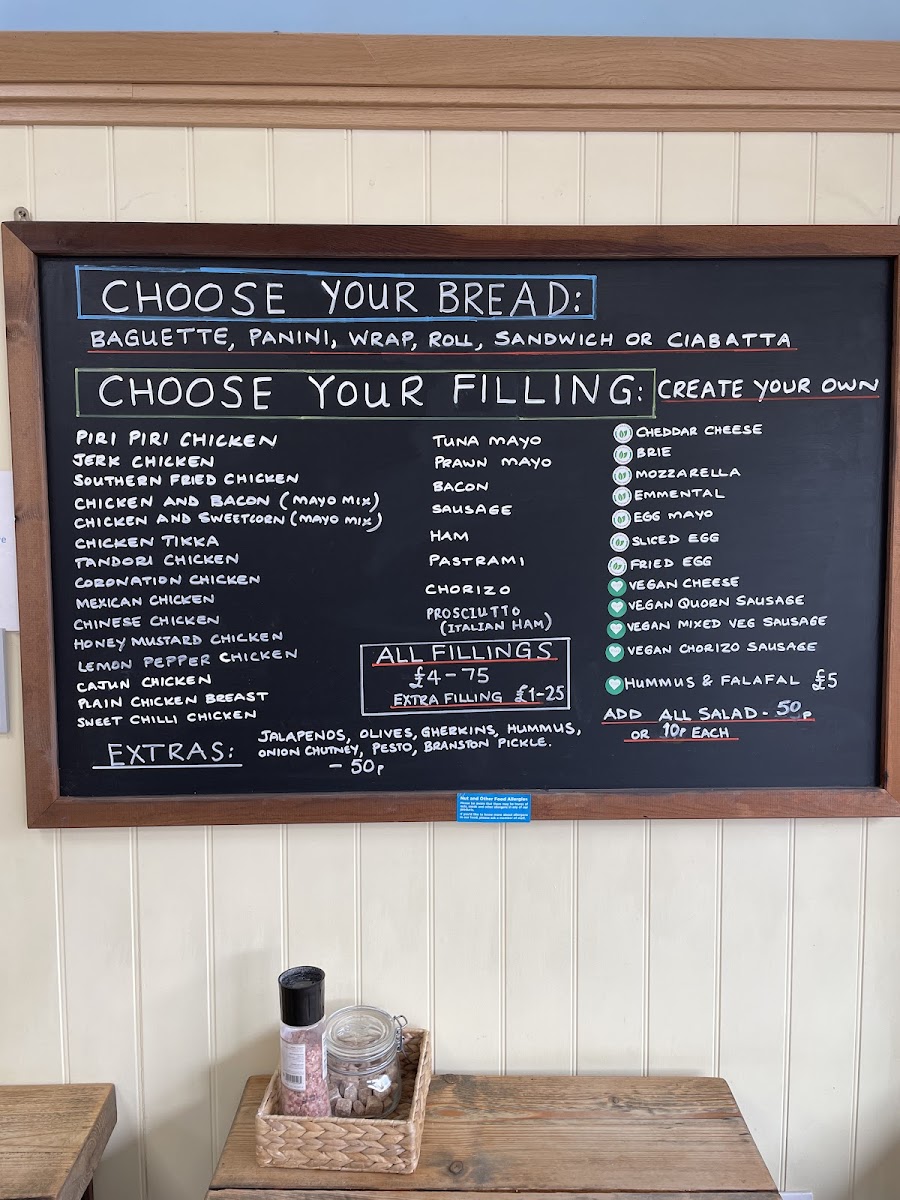 CHOOSE YOUR BREAD:
BAGUETTE, PANINI, WRAP, ROLL, SANDWICH OR CIABATTA
CHOOSE YOUR FILLING: CREATE YOUR OWN
PIRI PIRI CHICKEN
JERK CHICKEN
SOUTHERN FRIED CHICKEN
CHICKEN AND BACON (MAYO MIX)
CHICKEN AND SWEETCORN (MAYO MIX)
CHICKEN TIKKA
TANDORI CHICKEN
CORONATION CHICKEN
MEXICAN CHICKEN
CHINESE CHICKEN
HONEY MUSTARD CHICKEN
LEMON PEPPER CHICKEN
CAJUN CHICKEN
PLAIN CHICKEN BREAST
SWEET CHILLI CHICKEN
TUNA MAYO
PRAWN MAYO
BACON
SAUSAGE
HAM
PASTRAMI
CHORIZO
PROSCIUTTO
(ITALIAN HAM)
ALL FILLINGS
£4-75
EXTRA FILLING £1-25
CHEDDAR CHEESE
BRIE
MOZZARELLA
EMMENTAL
EGG MAYO
SLICED EGG
FRIED EGG
VEGAN CHEESE
VEGAN QUORN SAUSAGE
VEGAN MIXED VEG SAUSAGE
VEGAN CHORIZO SAUSAGE
HUMMUS & FALAFAL £5
ADD ALL SALAD - 50p
OR 10p EACH
EXTRAS: JALAPENOS, OLIVES, GHERKINS, HUMMUS,
ONION CHUTNEY, PESTO, BRANSTON PICKLE.
- 50p
Nut and Other Food Allergies